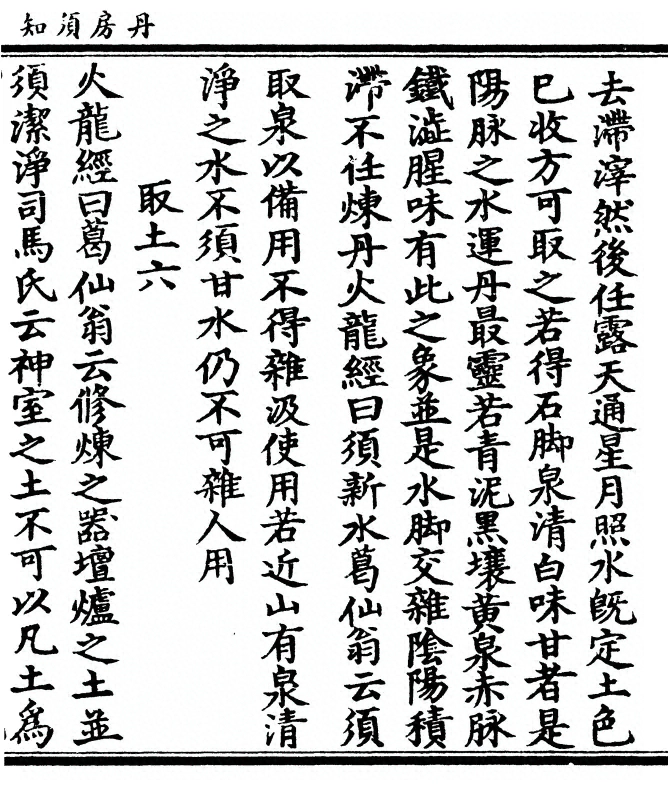 丹房須知
去滯滓然後任露天通星月照水既定土色
巳收方可取之若得石脚泉清白味甘者是
陽脉之水運丹最靈若青泥黑壤黄泉赤脉
鐵澁腥味有此之象並是水脚交雜陰陽積
滯不任煉丹火龍經曰須新水葛仙翁云須
取泉以備用不得雜汲使用若近山有泉清
淨之水不須甘水仍不可雜人用
取土六
火龍經曰葛仙翁云修煉之器壇爐之土並
須潔淨司馬氏云神室之土不可以凡土爲